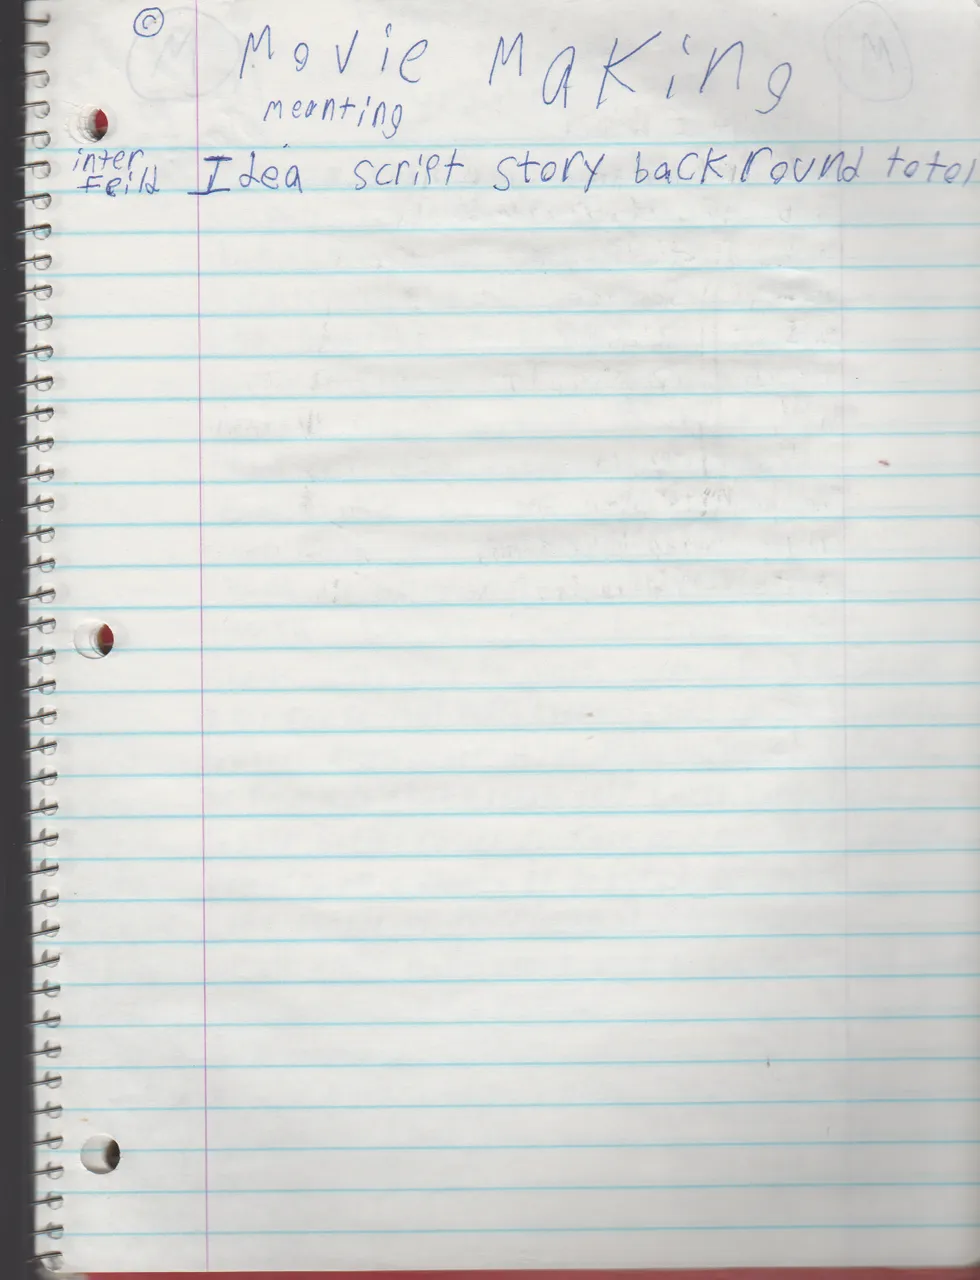 © Movie Making
meanting
inter
Feild Idea script story backround totel